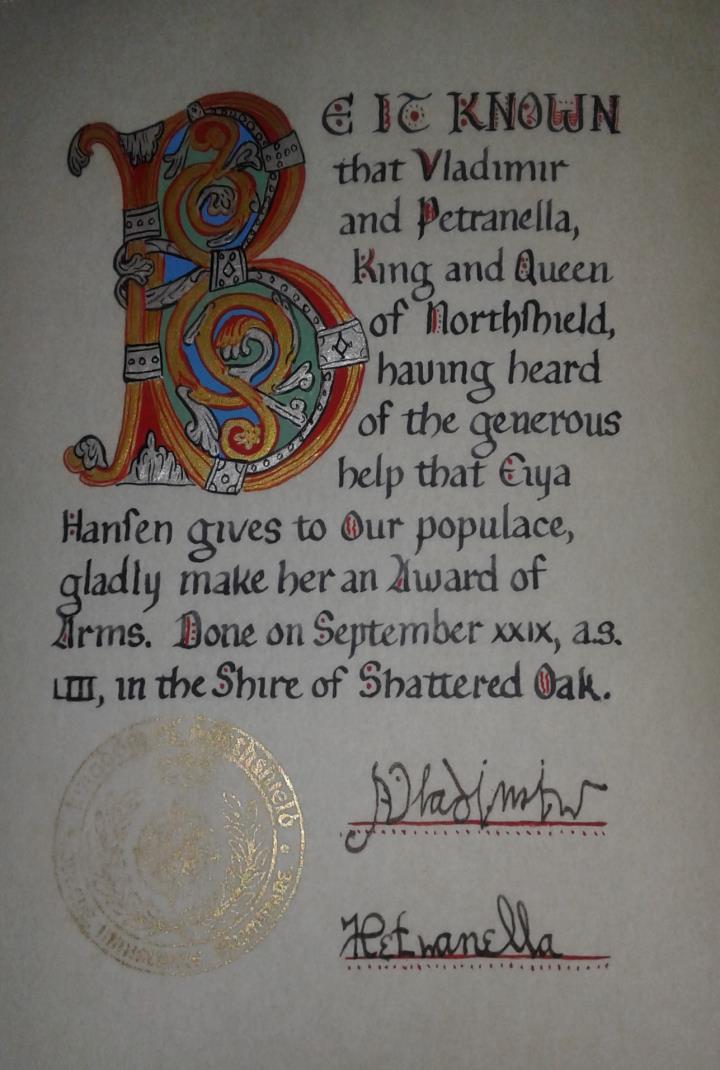 BE IT KNOWN
that Vladimir
and Petranella,
King and Queen
of Northſhield,
having heard
of the generous
help that Eiya
Hanſen gives to Our populace,
gladly make her an Award of
Arms. Done on September xxix, a.s.
LIII, in the Shire of Shattered Oak.
Kingdom of Northshield
Vladimir
Petranella